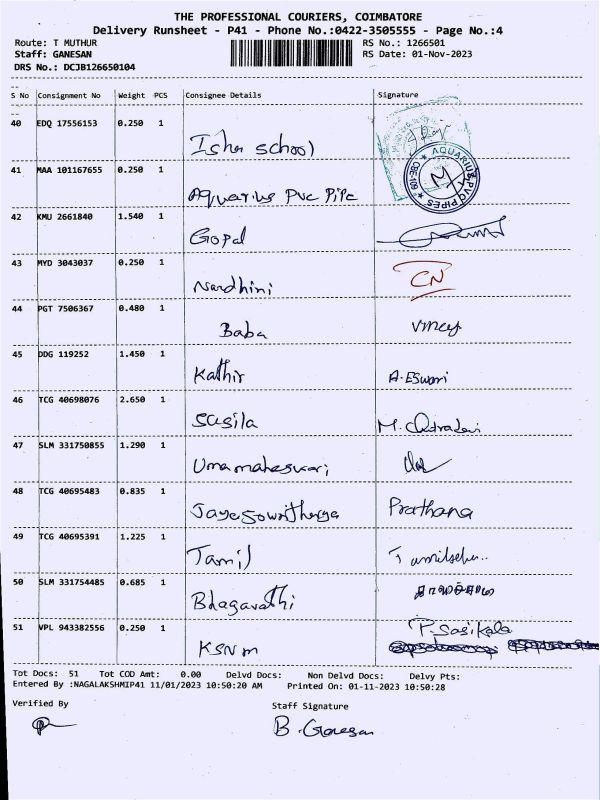 THE PROFESSIONAL COURIERS, COIMBATORE
Delivery Runsheet - P41 - Phone No.:0422-3505555 - Page No.:4
Route: T MUTHUR RS No.: 1266501
Staff: GANESAN RS Date: 01-Nov-2023
DRS No.: DCJB126650104
S No Consignment No Weight PCS Consignee Details Signature
40 EDQ 17556153 0.250 1
Isha school
41 MAA 101167655 0.250 1
AQUARIUS PVC PIPES CBE-109
Aquarius Pvc Pipe
42 KMU 2661840 1.540 1
Gopal
43 MYD 3043037 0.250 1
Nandhini CN
44 PGT 7506367 0.480 1
Baba
45 DDG 119252 1.450 1
Kathir A. Eswari
46 TCG 40698076 2.650 1
Sasila M. Chitradevi
47 SLM 331750855 1.290 1
Uma maheswari
48 TCG 40695483 0.835 1
Prathana
49 TCG 40695391 1.225 1
Tamil
50 SLM 331754485 0.685 1
Bhagavathi
51 VPL 943382556 0.250 1
P. Sasikala
KSNM
Tot Docs: 51 Tot COD Amt: 0.00 Delvd Docs: Non Delvd Docs: Delvy Pts:
Entered By :NAGALAKSHMIP41 11/01/2023 10:50:20 AM Printed On: 01-11-2023 10:50:28
Verified By Staff Signature
B. Ganesan